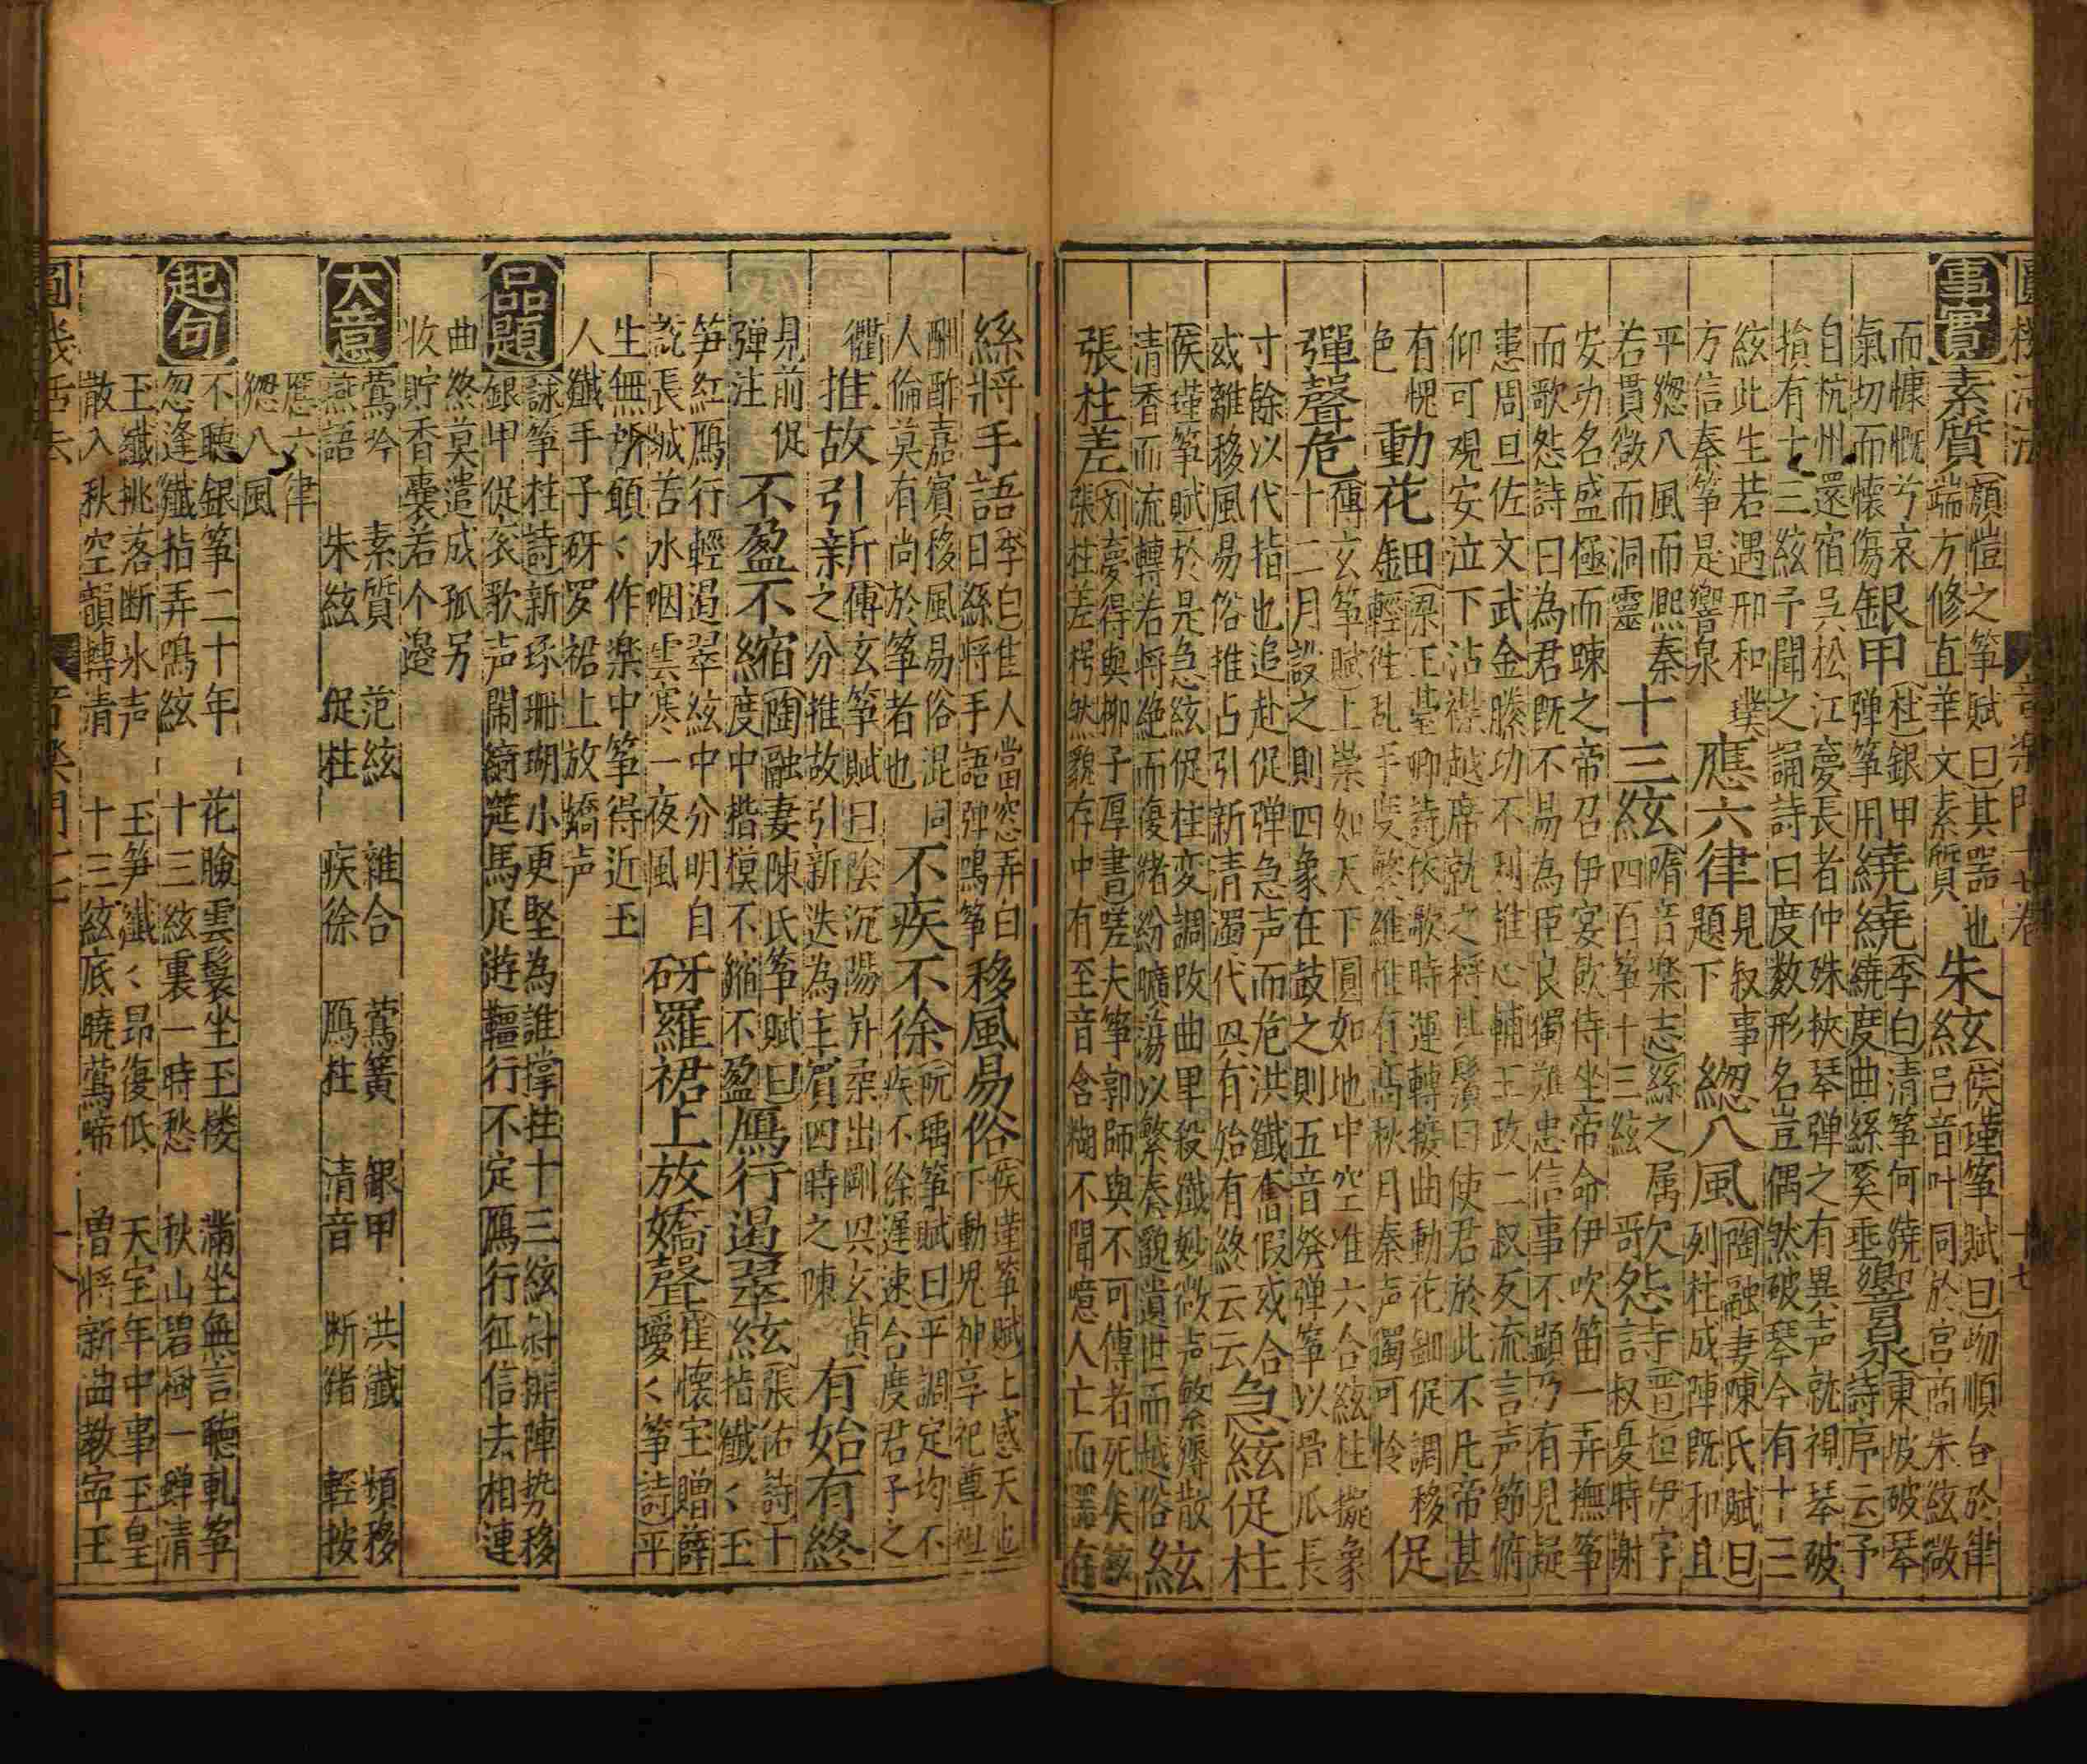 圓機活法 音樂門十七卷 十七
事實 素質 顏愷之箏賦曰其器也端方修直華文素質 朱絃 侯瑾箏賦曰順合於律呂音叶同於宮商朱絃微
而慷慨兮哀氣切而懷傷 銀甲 杜銀甲彈箏用 繞繞 李白清箏何繞繞度曲綠 響泉 東坡破琴詩序云予
自杭州還宿吳松江夢長者仲殊挾琴彈之有異声就視琴破損有十三絃予聞之誦詩曰度数形名豈偶然破琴今有十三
絃此生若遇邢和璞方信秦箏是響泉 應六律 見叙事題下 緫八風 陶融妻陳氏賦曰列柱成陣既和且
平緫八風而熈秦若貫微而洞靈 十三絃 隋音楽志絲之属四百箏十三絃 歌怨詩 晋桓伊字叔夏時謝
安功名盛極而踈之帝召伊宴飲侍坐帝命伊吹笛一弄撫箏而歌怨詩曰為君既不易為臣良獨難忠信事不顯乃有見疑
患周旦佐文武金縢功不刊推心輔王政二叔反流言声節俯仰可观安泣下沾襟越席就之捋其鬚曰使君於此不凡帝甚
有愧色 動花鈿 梁王臺卿詩依歌時運轉接曲動花鈿促調移輕徃乱手度繁維惟有高秋月秦声獨可怜 促
彈聲危 傅玄箏賦上崇如天下圓如地中空准六合絃柱擬象十二月設之則四象在鼓之則五音發弹箏以骨爪長
寸餘以代指也追赴促彈急声而危洪纖奮假或合或離移風易俗推占引新清濁代興有始有終云云 急絃促柱
侯瑾箏賦於是急絃促柱変調改曲卑殺纖妙微声繁縟散清香而流轉若将絶而復緒紛曠蕩以繁奏邈遺世而越俗 絃
張柱差 刘夢得與柳子厚書嗟夫箏郭師與不可傳者死矣絃張柱差枵然貌存中有至音含糊不聞噫人亡而器存
絲將手語 李白佳人當窓弄白日絲将手語弹鳴箏 移風易俗 侯瑾箏賦上感天地下動鬼神享祀尊祖
酬酢嘉賓移風易俗混同人倫莫有尚於箏者也 不疾不徐 阮瑀箏賦曰平調定均不疾不徐遅速合度君子之
衢 推故引新 傅玄箏賦曰陰沉陽升柔出剛興玄黄之分推故引新迭為主賓四時之陳 有始有終
見前促弹注 不盈不縮 陶融妻陳氏箏賦曰度中楷模不縮不盈 鴈行遏翠絃 張佑詩十指纖く玉
笋紅鴈行輕遏翠絃中分明自説長城苦水咽雲寒一夜風 砑羅裙上放嬌聲 崔懷宝贈薛瓊く箏詩平
生無所願く作楽中筝得近玉人纖手子砑罗裙上放嬌声
品題 詠箏柱詩新琢珊瑚小更堅為誰撐拄十三絃斜排陣势移銀甲促衮歌声閙綺筵馬足遊韁行不定鴈行征信去相連
曲終莫遣成孤另收貯香囊若个邉
大意 鶯吟 素質 范絃 雜合 鶯簧 銀甲 洪纖 頻移
燕語 朱絃 促柱 疾徐 鴈柱 清音 断緒 輕按
應六律
緫八風
起句 不聽銀箏二十年 花臉雲鬟坐玉楼 滿坐無言聽軋箏
忽逢纖指弄鳴絃 十三絃裏一時愁 秋山碧樹一蝉清
玉纖挑落断氷声 玉笋纖く昂復低 天宝年中事玉皇
散入秋空韻轉清 十三絃底曉鶯啼 曽将新曲教寧王
圓機活法 音樂門十七 十八